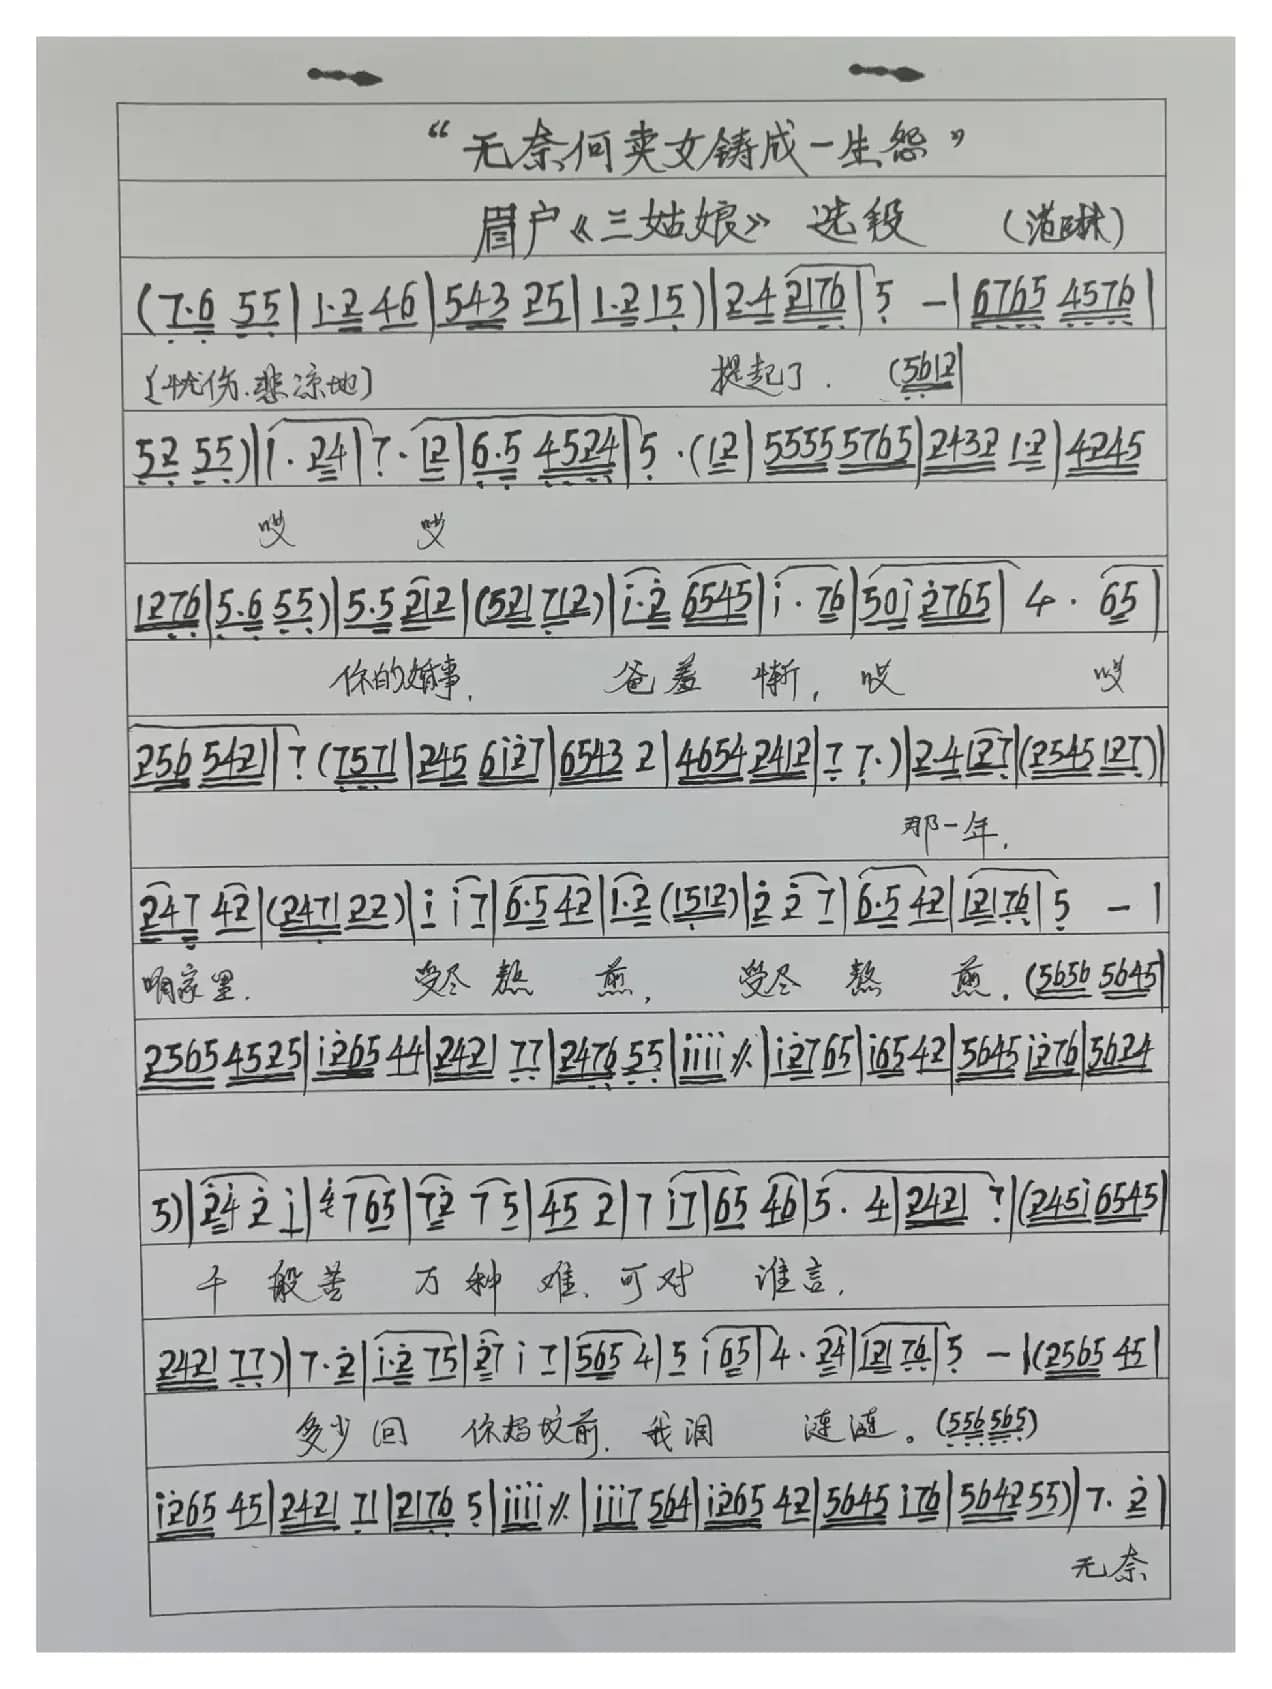 “无奈何卖女铸成一生怨”
眉户《三姑娘》选段 (范琳)
(7·6 55|1·2 46|543 25|1·2 15)|2·4 2176|5 -|6765 4576|
(忧伤.悲凉地) 提起了. (5612|
52 55)|1·24|7·12|6·5 4524|5·(12|5555 5765|2432 1·2|4245
哎 哎
1276|5·6 55)|5·5 212|(521 712)|i·2̇ 6545|i·76|50i 2̇765 4·65|
你的婚事, 爸羞惭, 哎 哎
256 5421|7 (7571|245 6i2̇7|6543 2|4654 2412|7 7·)|2·4 127|(2545 127)|
那一年,
247 42|(2471 22)|i i7|6·5 42|1·2 (1512)|2̇ 2̇ 7|6·5 42|12176|5 -|
咱家里. 受尽熬煎, 受尽熬煎. (5656 5645|
2565 4525|i2̇65 44|2421 77|2476 55|iiii ⁄⁄.|i2̇765|i65 42|5645 i2̇76|5624
5)|2̇4̇ 2̇ i|4̇765|72̇ 75|45 2|7 i7|65 46|5·4|2421 7|(245i 6545|
千般苦 万种难, 可对谁言,
2421 77)|7·2̇|i·2̇ 75|2̇7 i 7|565 4|5 i65|4·24|12176|5 -|(2565 45|
多少回 你妈坟前, 我泪涟涟。(556 565)
i2̇65 45|2421 71|2176 5|iiii ⁄⁄.|iii7 564|i2̇65 42|5645 i76|5642 55)|7·2̇|
无奈